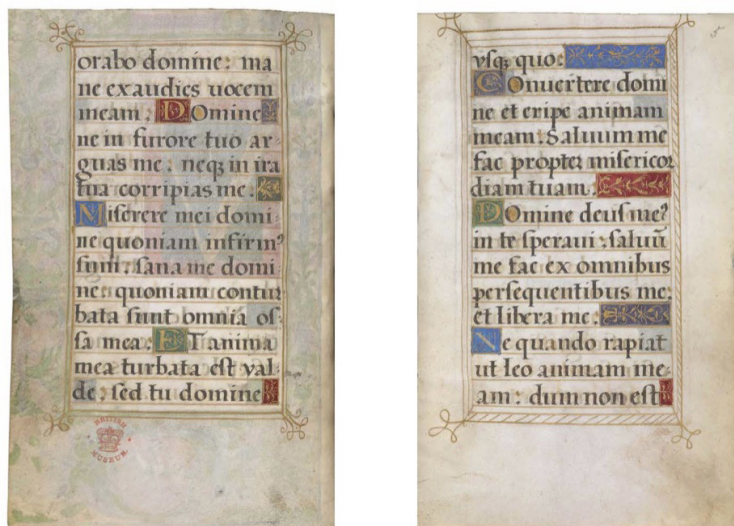 orabo domine: ma
ne exaudies uocem
meam: Domine
ne in furore tuo ar
guas me: neq; in ira
tua corripias me:
Miserere mei domi
ne quoniam infirm⁹
sum: sana me domi
ne: quoniam contur
bata sunt omnia os
sa mea: ET anima
mea turbata est val
de: sed tu domine
BRITISH
MUSEUM
vsq; quo:
COnuertere domi
ne et eripe animam
meam: Saluum me
fac propter misericor
diam tuam:
DOmine deus me⁹
in te speraui: saluū
me fac ex omnibus
persequentibus me:
et libera me:
Ne quando rapiat
ut leo animam me
am: dum non est